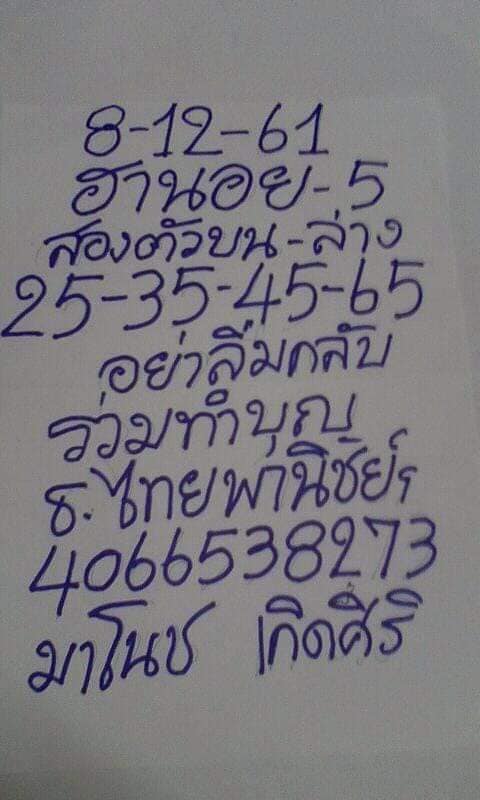 8-12-61
ฮานอย-5
สองตัวบน-ล่าง
25-35-45-65
อย่าลืมกลับ
ร่วมทำบุญ
ธ.ไทยพานิชย์ฯ
4066538273
มาโนช เกิดศิริ